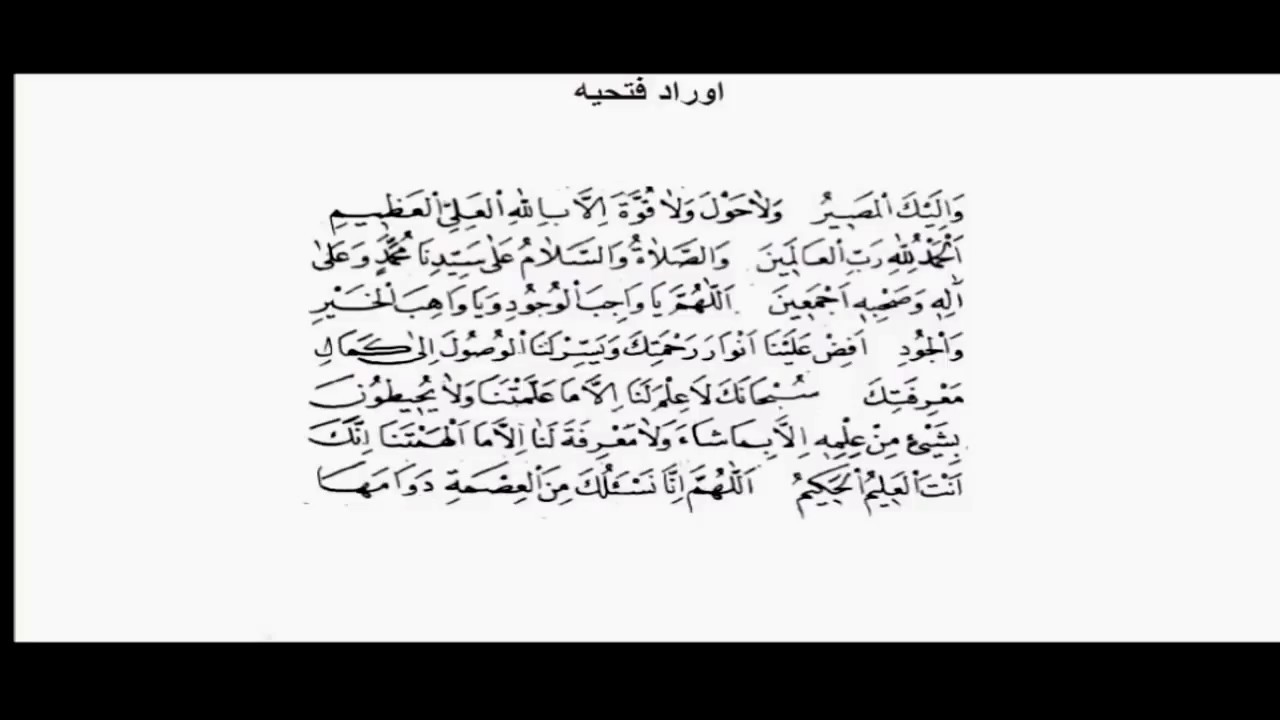 اوراد فتحيه
وَاِلَيْكَ الْمَصِيرُ وَلَا حَوْلَ وَلَا قُوَّةَ اِلَّا بِاللّٰهِ الْعَلِيِّ الْعَظِيمِ
اَلْحَمْدُ لِلّٰهِ رَبِّ الْعَالَمِينَ وَالصَّلَاةُ وَالسَّلَامُ عَلٰى سَيِّدِنَا مُحَمَّدٍ وَعَلٰى
اٰلِهٖ وَصَحْبِهٖ اَجْمَعِينَ اَللّٰهُمَّ يَا وَاجِبَ الْوُجُودِ وَيَا وَاهِبَ الْخَيْرِ
وَالْجُودِ اَفِضْ عَلَيْنَا اَنْوَارَ رَحْمَتِكَ وَيَسِّرْ لَنَا الْوُصُولَ اِلٰى كَمَالِ
مَعْرِفَتِكَ سُبْحَانَكَ لَا عِلْمَ لَنَا اِلَّا مَا عَلَّمْتَنَا وَلَا يُحِيطُونَ
بِشَيْءٍ مِنْ عِلْمِهٖ اِلَّا بِمَا شَاءَ وَلَا مَعْرِفَةَ لَنَا اِلَّا مَا اَلْهَمْتَنَا اِنَّكَ
اَنْتَ الْعَلِيمُ الْحَكِيمُ اَللّٰهُمَّ اِنَّا نَسْئَلُكَ مِنَ الْعِصْمَةِ دَوَامَهَا